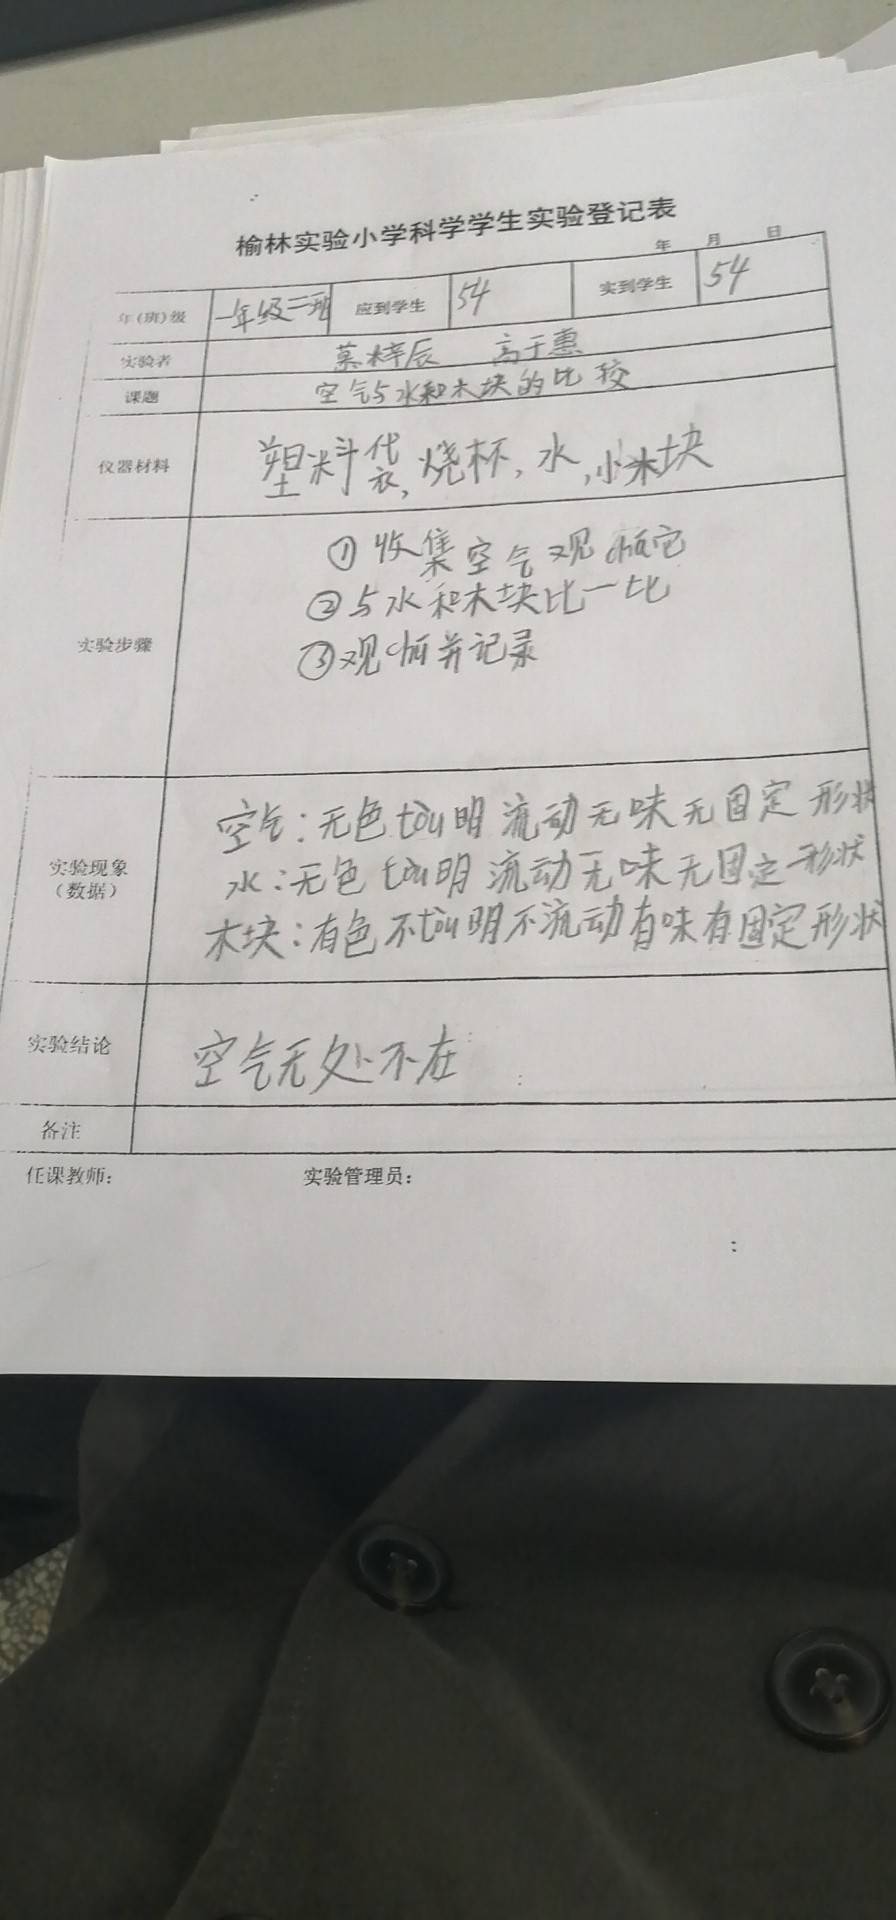 榆林实验小学科学学生实验登记表
年 月 日
年(班)级 一年级三班 应到学生 54 实到学生 54
实验者 慕梓辰 高于惠
课题 空气与水和木块的比较
仪器材料 塑料袋,烧杯,水,小木块
实验步骤
①收集空气观chá它
②与水和木块比一比
③观chá并记录
实验现象
(数据)
空气:无色tòu明流动无味无固定形状
水:无色tòu明流动无味无固定形状
木块:有色不tòu明不流动有味有固定形状
实验结论 空气无处不在
备注
任课教师: 实验管理员: